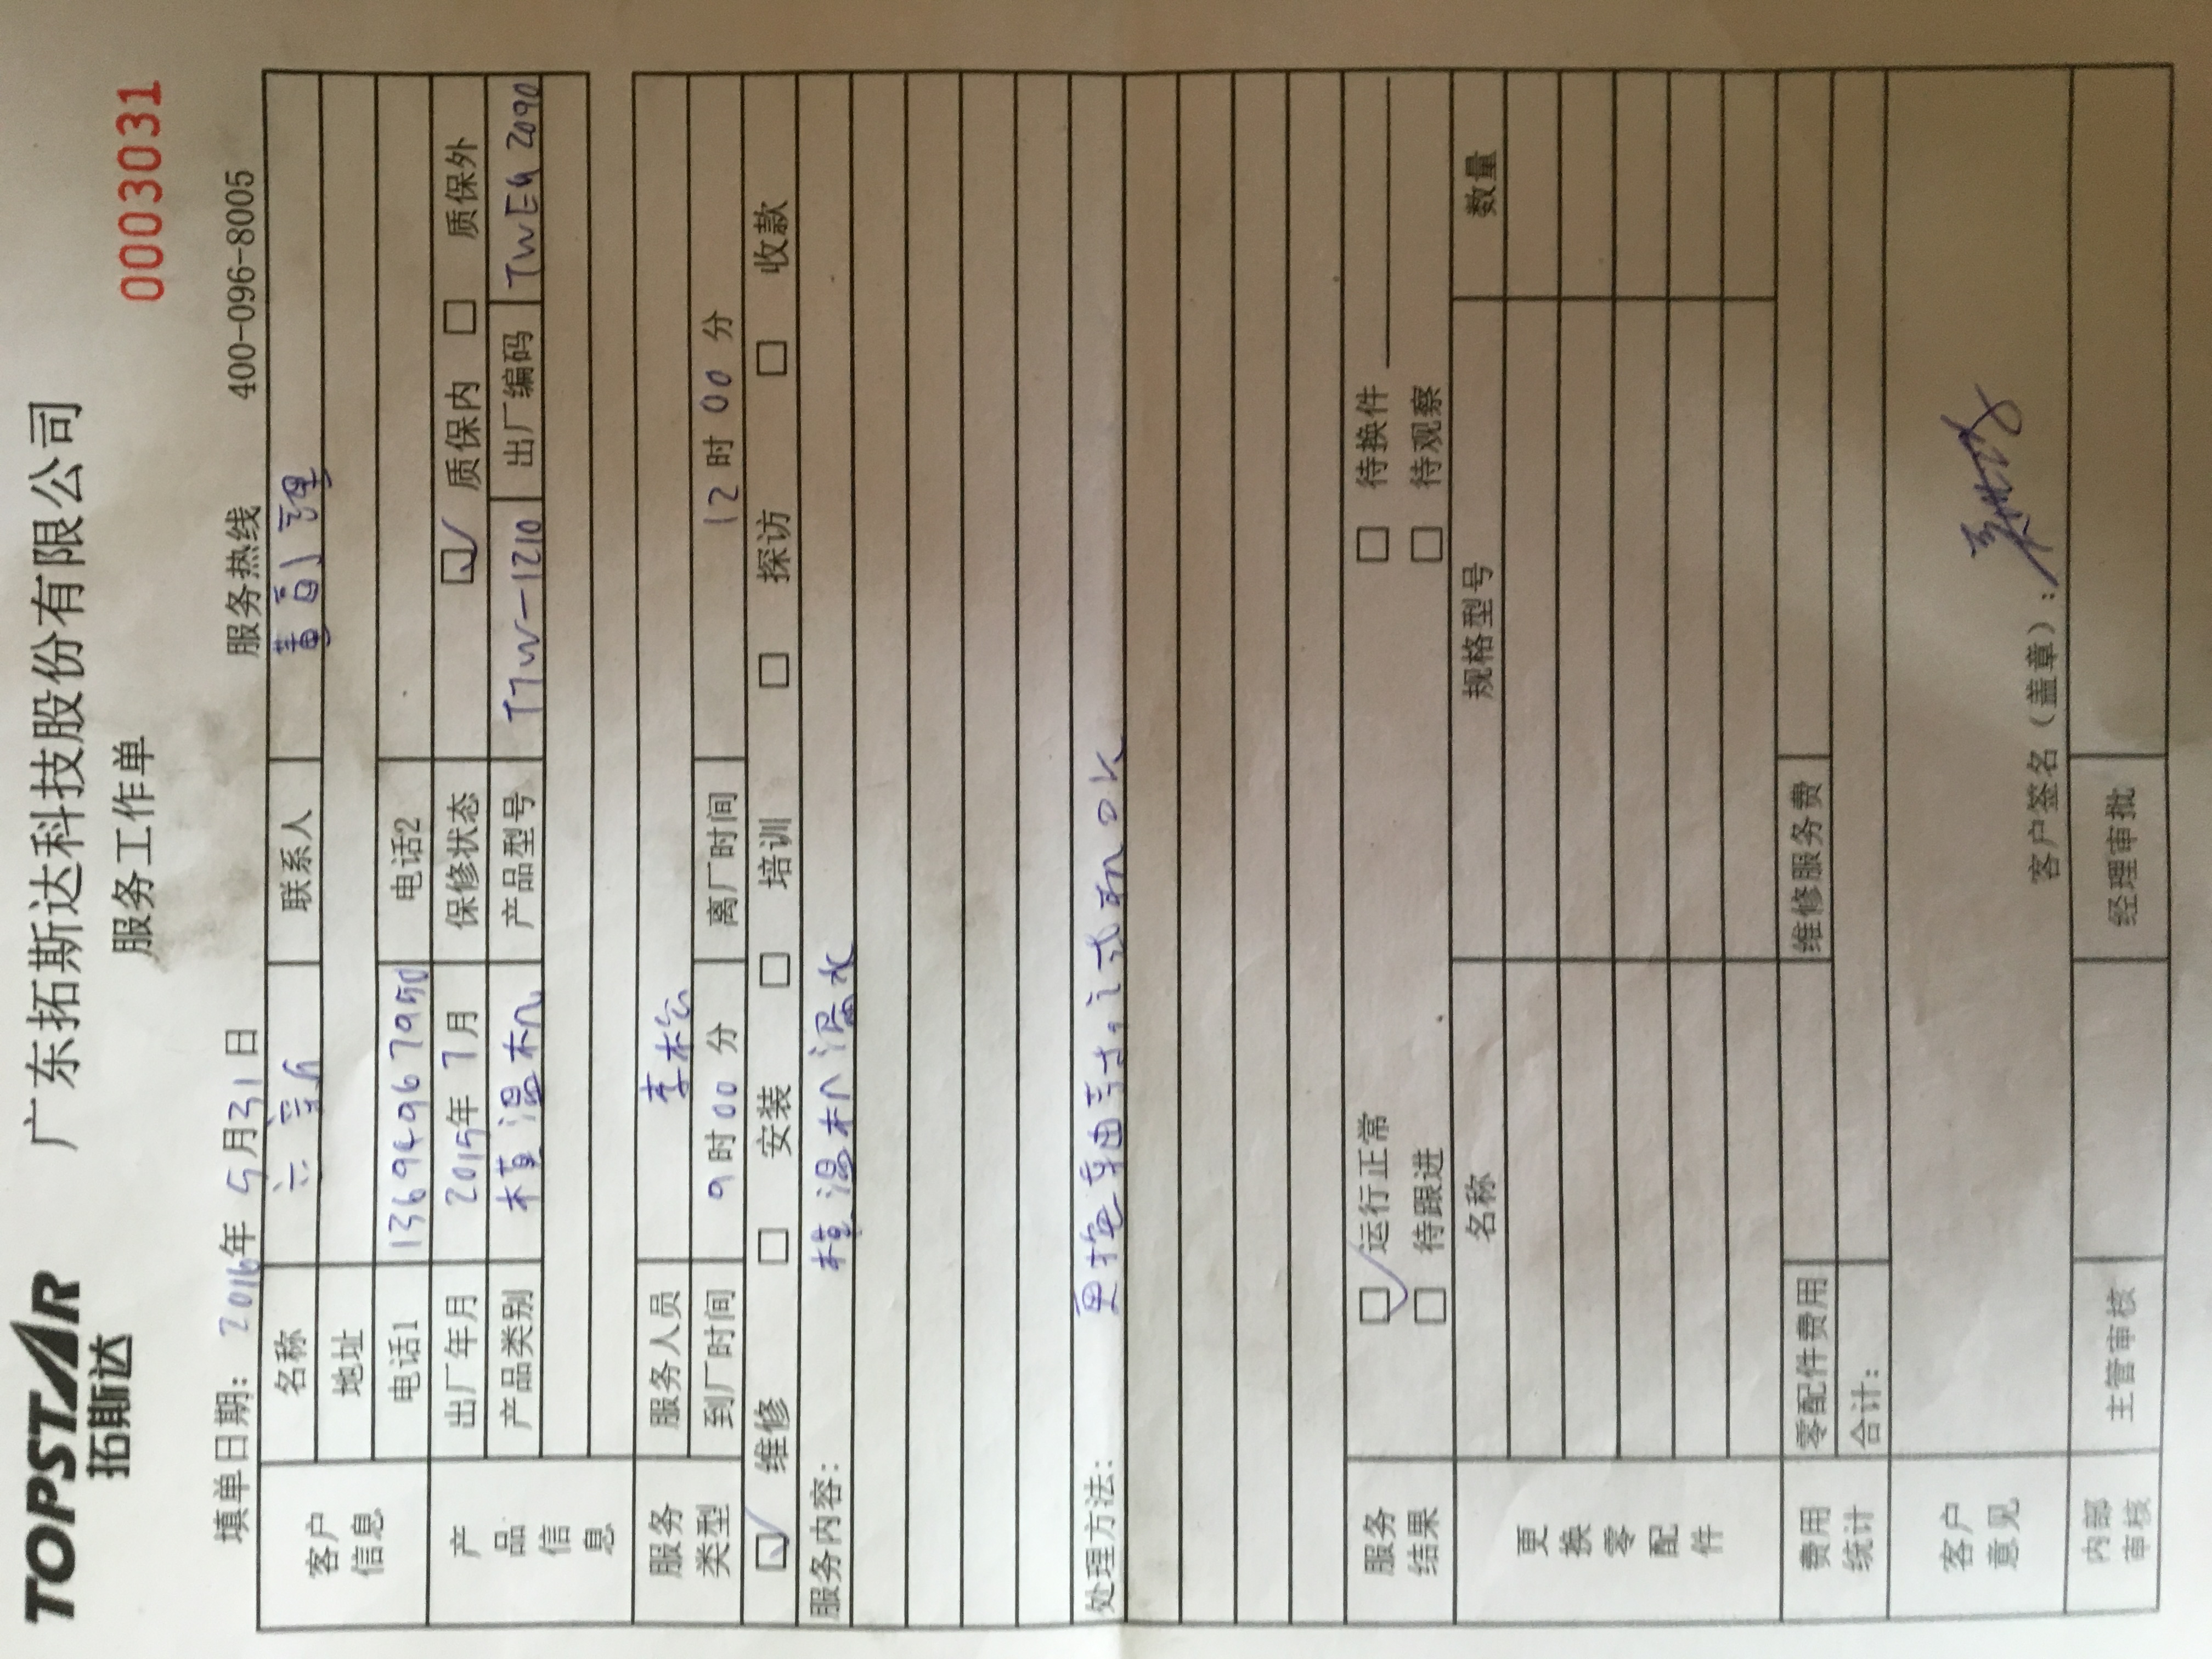 TOPSTAR 广东拓斯达科技股份有限公司
拓斯达 服务工作单 0003031
填单日期: 2016年 5月31日 服务热线 400-096-8005
客户信息 名称 联系人
地址
电话1 13694967950 电话2
产品信息 出厂年月 2015年 7月 保修状态 质保内 质保外
产品类别 模温机 产品型号 TTW-1210 出厂编码
服务类型 服务人员 李松
到厂时间 9时00分 离厂时间 12时00分
维修 安装 培训 探访 收款
服务内容: 模温机漏水
处理方法: 更换轴封,试机OK
服务结果 运行正常 待换件
待跟进 待观察
更换零配件 名称 规格型号 数量
费用统计 零配件费用 维修服务费
合计:
客户意见
客户签名(盖章):
内部审核 主管审核 经理审批